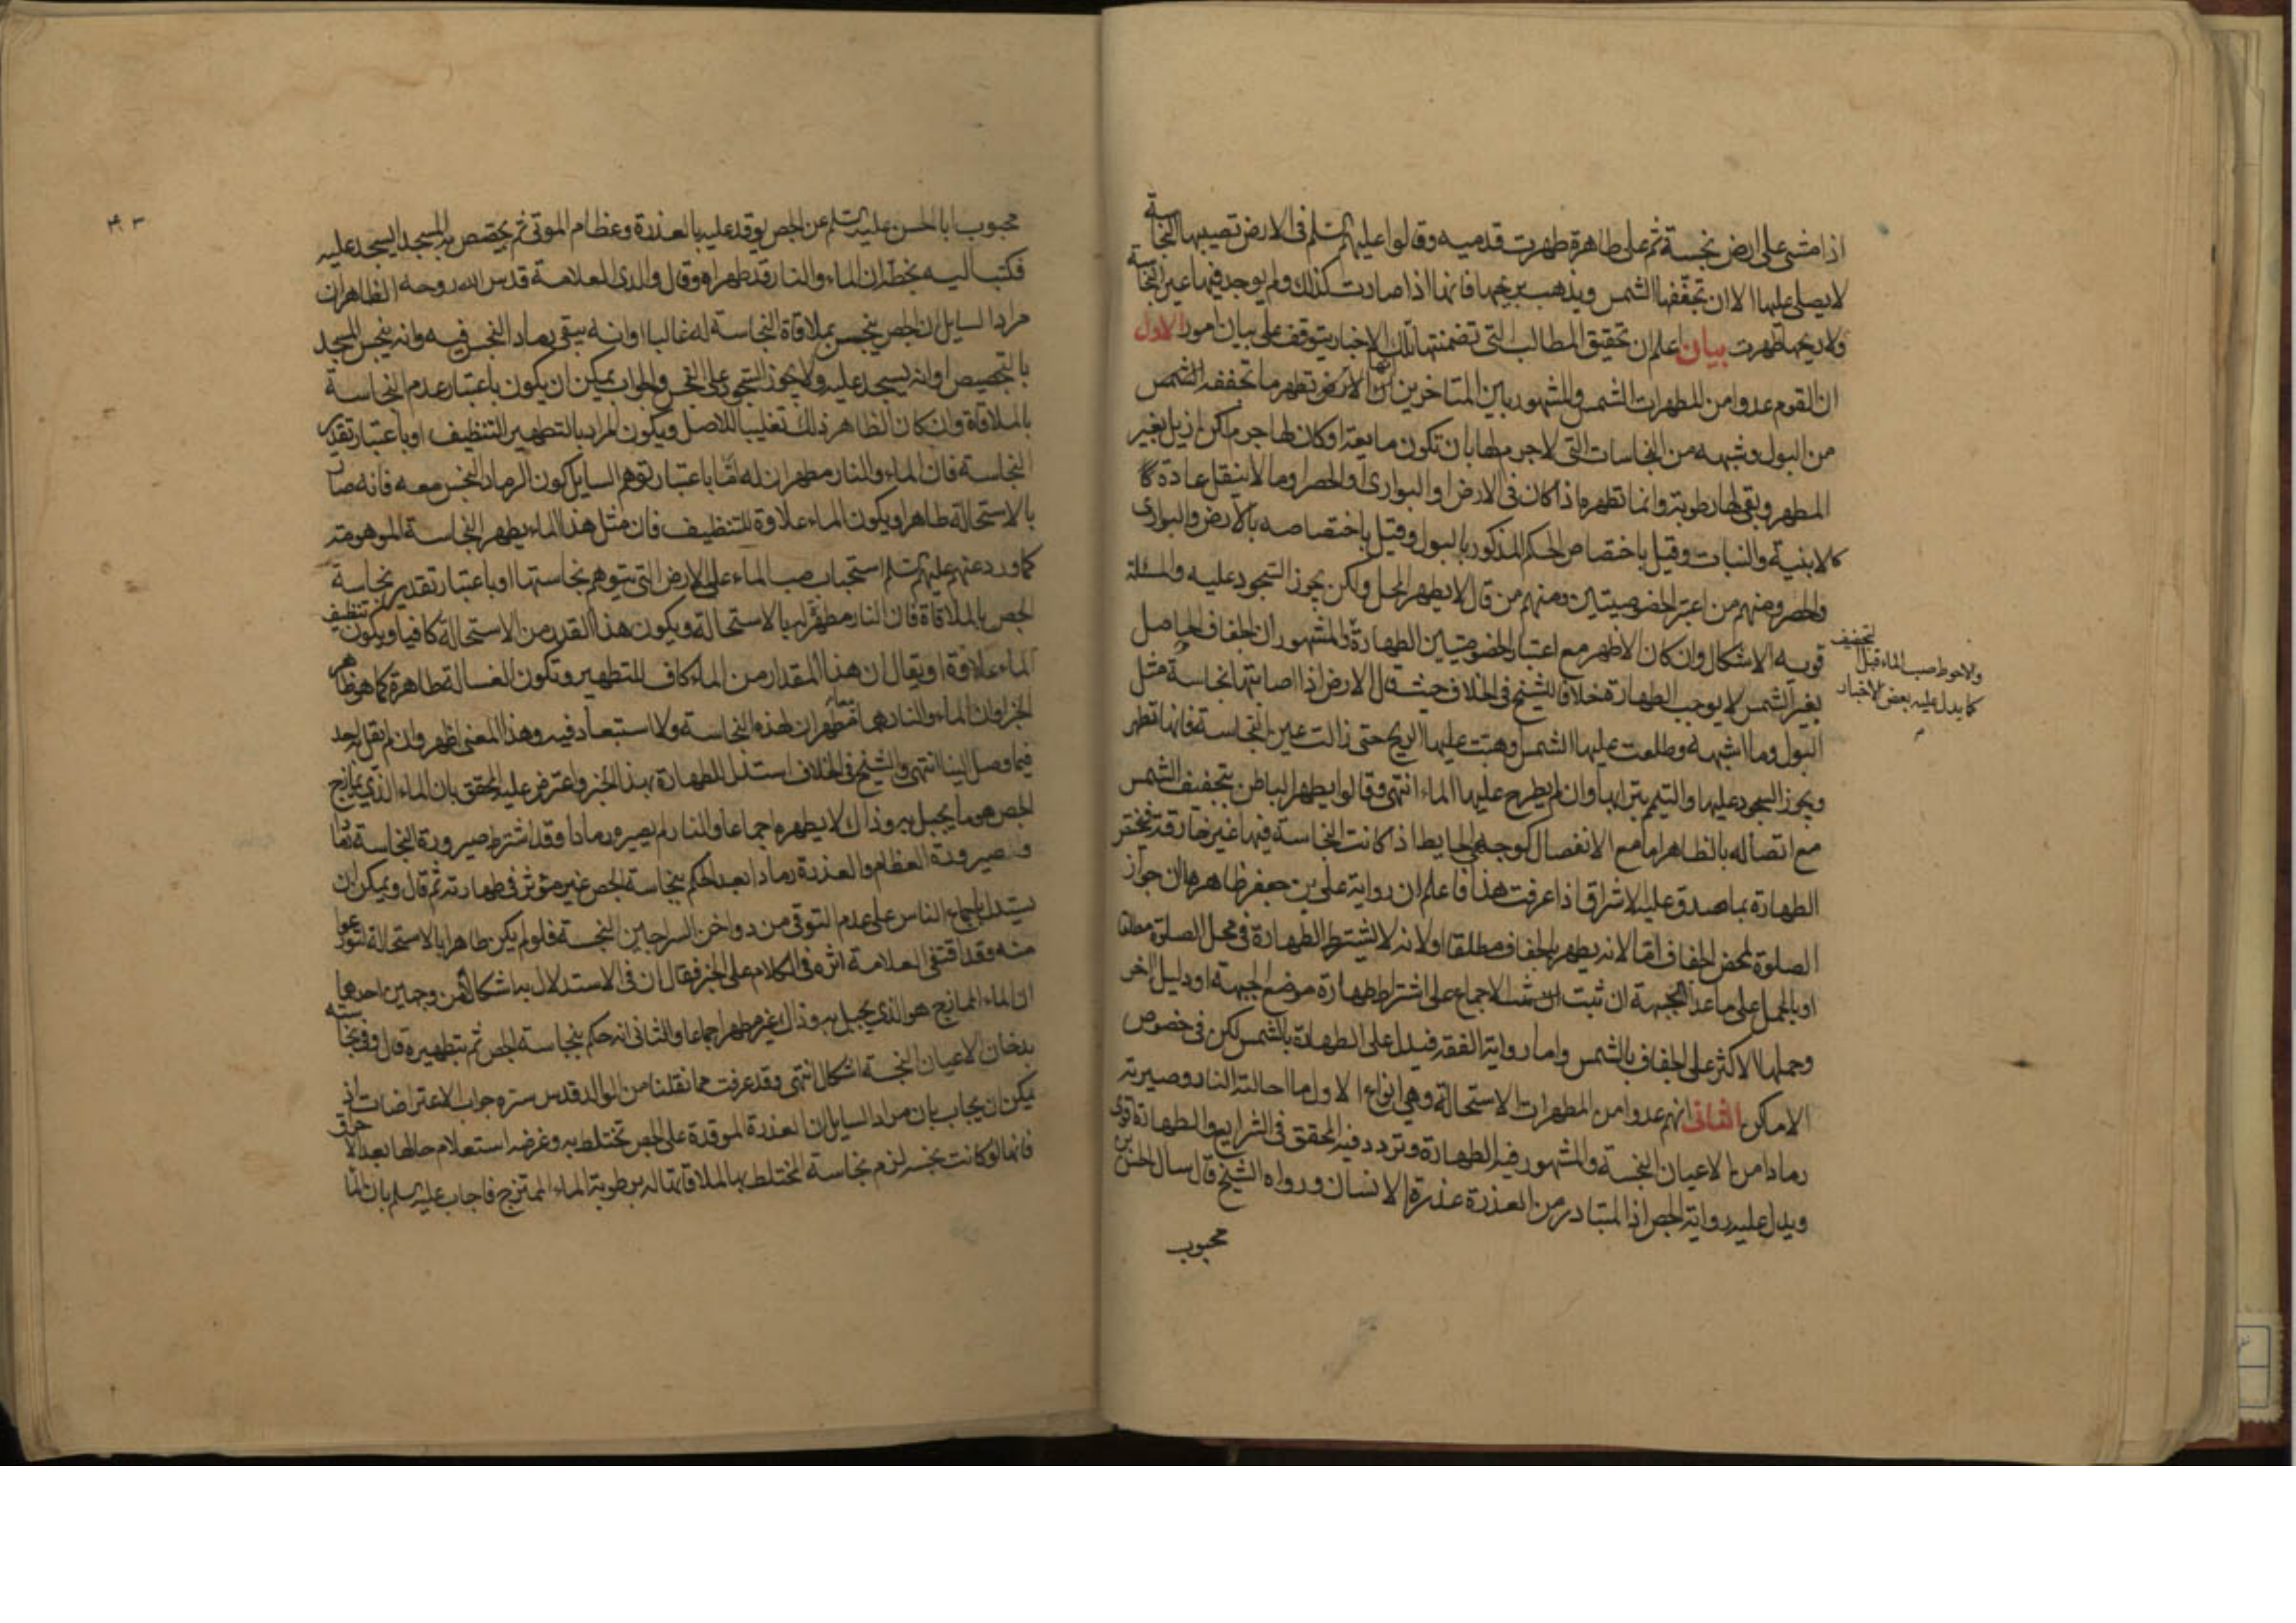 اذا مشى على ارض نجسة ثم على طاهرة طهرت قدميه وقالوا عليهم السلم فى الارض تصيبها النجاسة
لا يصلى عليها الا ان تجففها الشمس ويذهب بريحها فانها اذا صارت كذلك ولم يوجد فيها عين النجاسة
ولا ريحها طهرت بيان اعلم ان تحقيق المطالب التى تضمنتها تلك الاخبار يتوقف على بيان امور الاول
ان القوم عدوا من المطهرات الشمس والمشهور بين المتاخرين ان الارض تطهر ما تجففه الشمس
من البول وشبهه من النجاسات التى لا جرم لها بان تكون مايعة او كان لها جرم لكن ازيل بغير
المطهر وبقى لها رطوبة وانما تطهره اذا كان فى الارض او البوارى والحصر او ما لا ينقل عادة
كالابنية والنبات وقيل باختصاص الحكم المذكور بالبول وقيل باختصاصه بالارض والبوارى
والحصر ومنهم من اعتبر الخصوصيتين ومنهم من قال لا يطهر المحل ولكن يجوز السجود عليه والمسئلة
قوية الاشكال وان كان الاظهر مع اعتبار الخصوصيتين الطهارة والمشهور ان الجفاف الحاصل
بغير الشمس لا يوجب الطهارة خلافا للشيخ فى الخلاف حيث قال الارض اذا اصابتها نجاسة مثل
البول وما اشبهه وطلعت عليها الشمس وهبت عليها الريح حتى زالت عين النجاسة فانها تطهر
ويجوز السجود عليها والتيمم بترابها وان لم يطرح عليها الماء انتهى وقالوا يطهر الباطن بتجفيف الشمس
مع اتصاله بالظاهر اما مع الانفصال كوجهى الحايط اذا كانت النجاسة فيهما غير خارقة فتختص
الطهارة بما صدق عليه الاشراق اذا عرفت هذا فاعلم ان رواية على بن جعفر ظاهرها ان جواز
الصلوة لمحض الجفاف اما لانه يطهر بالجفاف مطلقا او لانه لا تشترط الطهارة فى محل الصلوة مطلقا
او بالحمل على ما عدا الجبهة ان ثبت الاجماع على اشتراط طهارة موضع الجبهة او دليل اخر
وحملها الاكثر على الجفاف بالشمس واما رواية الفقه فيدل على الطهارة بالشمس لكن فى خصوص
الاماكن الثانى انهم عدوا من المطهرات الاستحالة وهى انواع الاول ما احالته النار وصيرته
رمادا من الاعيان النجسة والمشهور فيه الطهارة وتردد فيه المحقق فى الشرايع والطهارة اقوى
ويدل عليه رواية الجص اذ المتبادر من العذرة عذرة الانسان ورواه الشيخ قال سال الحسن بن
محبوب
والاحوط صب الماء قبل التجفيف
كما يدل عليه بعض الاخبار
م
٤٣
محبوب ابا الحسن عليه السلم عن الجص يوقد عليه بالعذرة وعظام الموتى ثم يجصص به المسجد ايسجد عليه
فكتب اليه بخطه ان الماء والنار قد طهراه وقال والدى العلامة قدس الله روحه الظاهر ان
مراد السايل ان الجص ينجس بملاقاة النجاسة له غالبا او انه يبقى رماد النجس فيه وانه ينجس المسجد
بالتجصيص او انه يسجد عليه ولا يجوز السجود على النجس والجواب يمكن ان يكون باعتبار عدم النجاسة
بالملاقاة وان كان الظاهر ذلك تغليبا للاصل ويكون المراد بالتطهير التنظيف او باعتبار تقدير
النجاسة فان الماء والنار مطهران له اما باعتبار توهم السايل كون الرماد النجس معه فانه صار
بالاستحالة طاهرا ويكون الماء علاوة للتنظيف فان مثل هذا الماء يطهر النجاسة الموهومة
كما ورد عنهم عليهم السلم استحباب صب الماء على الارض التى يتوهم نجاستها او باعتبار تقدير نجاسة
الجص بالملاقاة فان النار مطهرة له بالاستحالة ويكون هذا القدر من الاستحالة كافيا ويكون تنظيف
الماء علاوة او يقال ان هذا المقدار من الماء كاف للتطهير وتكون الغسالة طاهرة كما هو ظاهر
الخبر او ان الماء والنار هما معا مطهران لهذه النجاسة ولا استبعاد فيه وهذا المعنى اظهر وان لم يقل به احد
فيما وصل الينا انتهى والشيخ فى الخلاف استدل للطهارة بهذا الخبر واعترض عليه المحقق بان الماء الذى يمازج
الجص هو ما يجبل به وذاك لا يطهره اجماعا والنار لم يصيره رمادا وقد اشترط صيرورة النجاسة رمادا
وصيرورة العظام والعذرة رمادا بعد الحكم بنجاسة الجص غير مؤثر فى طهارته ثم قال ويمكن ان
يستدل باجماع الناس على عدم التوقى من دواخن السراجين النجسة فلو لم يكن طاهرا بالاستحالة لتورعوا
منه وقد اقتفى العلامة اثره فى الكلام على الخبر فقال ان فى الاستدلال به اشكالا من وجهين احدهما
ان الماء الممازج هو الذى يجبل به وذاك غير مطهر اجماعا والثانى انه حكم بنجاسة الجص ثم بتطهيره قال وفى نجاسته
بدخان الاعيان النجسة اشكال انتهى وقد عرفت مما نقلنا من الوالد قدس سره جواب الاعتراضات اذ
يمكن ان يجاب بان مراد السايل ان العذرة الموقدة على الجص تختلط به وغرضه استعلام حالها بعد الاحراق
فانها لو كانت نجسة لزم نجاسة المختلط بها لملاقاتها له برطوبة الماء الممتزج فاجاب عليه السلم بان الماء